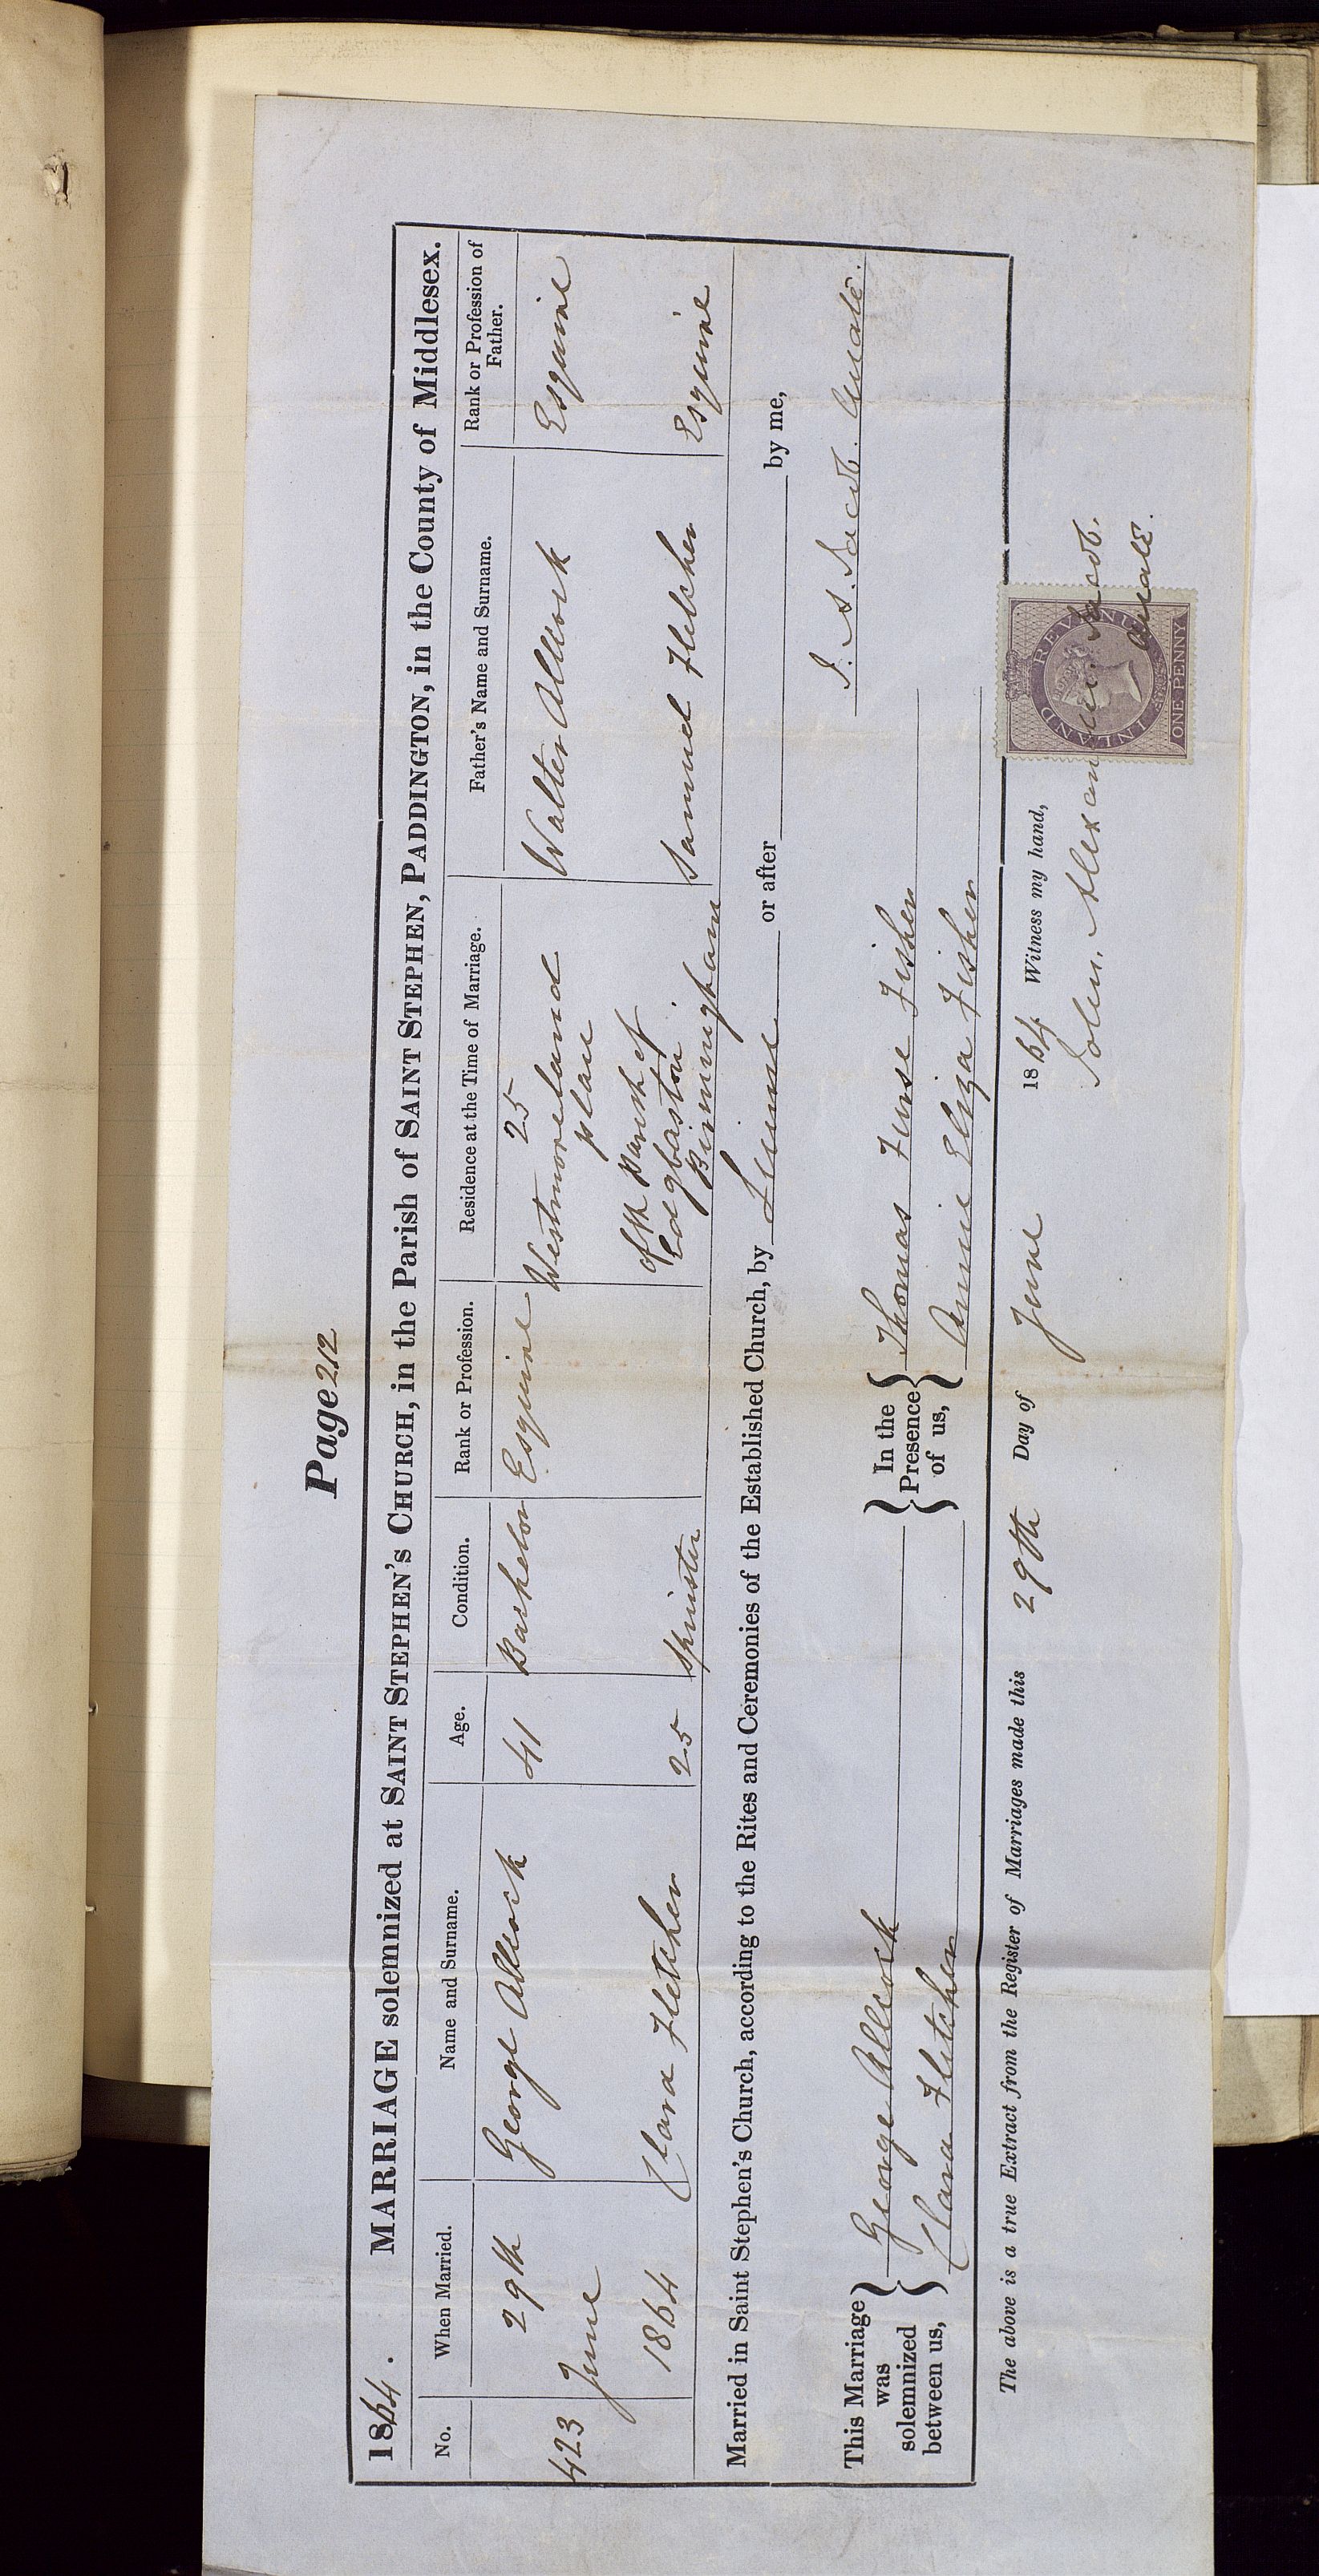 Page 212
1864. MARRIAGE solemnized at SAINT STEPHEN'S CHURCH, in the Parish of SAINT STEPHEN, PADDINGTON, in the County of Middlesex.
No. When Married. Name and Surname. Age. Condition. Rank or Profession. Residence at the Time of Marriage. Father's Name and Surname. Rank or Profession of Father.
423 29th June 1864
George Allcock 41 Bachelor Esquire 25 Westmoreland place Walter Allcock Esquire
Clara Fletcher 25 Spinster of the Parish of Edgbaston Birmingham Samuel Fletcher Esquire
Married in Saint Stephen's Church, according to the Rites and Ceremonies of the Established Church, by License or after by me,
J. A. Jacob. Curate.
This Marriage was solemnized between us, George Allcock Clara Fletcher
In the Presence of us, Thomas Furse Fisher Annie Eliza Fisher
The above is a true Extract from the Register of Marriages made this 29th Day of June 1864 Witness my hand,
John. Jacob.
Curate.
INLAND REVENUE
ONE PENNY